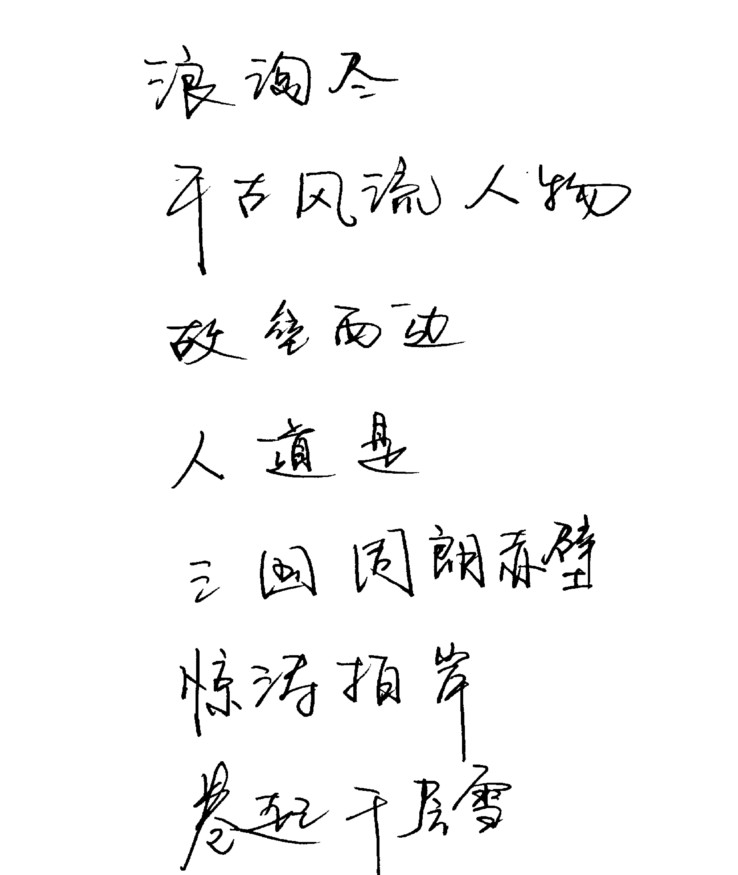 浪淘尽
千古风流人物
故垒西边
人道是
三国周朗赤壁
惊涛拍岸
卷起千层雪